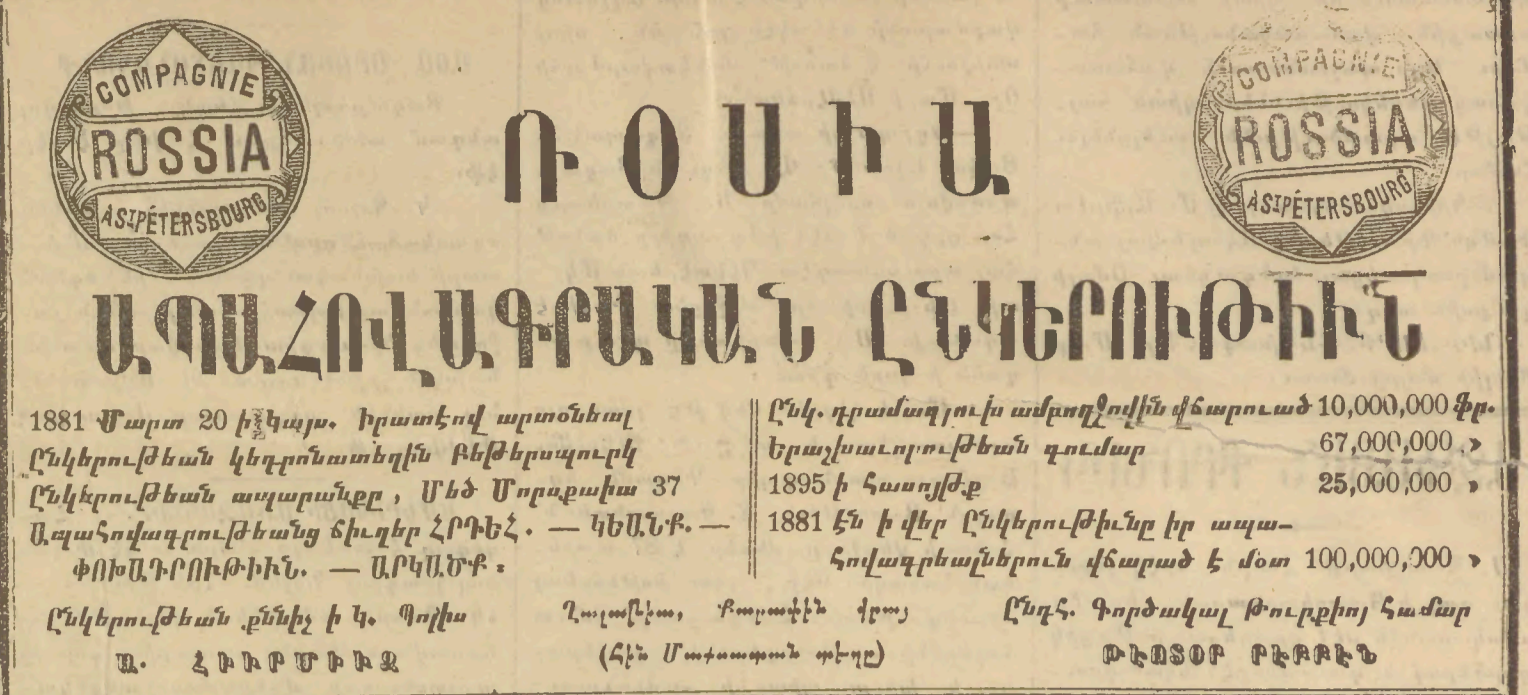 COMPAGNIE
ROSSIA
À ST PÉTERSBOURG
ՌՕՍԻԱ
COMPAGNIE
ROSSIA
À ST PÉTERSBOURG
ԱՊԱՀՈՎԱԳՐԱԿԱՆ ԸՆԿԵՐՈՒԹԻՒՆ
1881 Մարտ 20 ի կայս. իրատէով արտօնեալ
Ընկերութեան կեդրոնատեղին Բեթերսպուրկ
Ընկերութեան ապարանքը , Մեծ Մորսքաիա 37
Ապահովագրութեանց ճիւղեր ՀՐԴԵՀ. — ԿԵԱՆՔ. —
ՓՈԽԱԴՐՈՒԹԻՒՆ. — ԱՐԿԱԾՔ ։
Ընկ. դրամագլուխ ամբողջովին վճարուած 10,000,000 ֆր.
Երաշխաւորութեան գումար 67,000,000 »
1895 ի հասոյթ.ք 25,000,000 »
1881 էն ի վեր Ընկերութիւնը իր ապա–
հովագրեալներուն վճարած է մօտ 100,000,000 »
Ընկերութեան քննիչ ի Կ. Պոլիս
Ա. ՀԻՒՐՄԻՒԶ
Ղալաթիա, Քարափին վրայ
(Հին Մաքսատան տեղը)
Ընդհ. Գործակալ Թուրքիոյ համար
ԹԷՈՏՕՐ ԲԷՔՔԷՆ